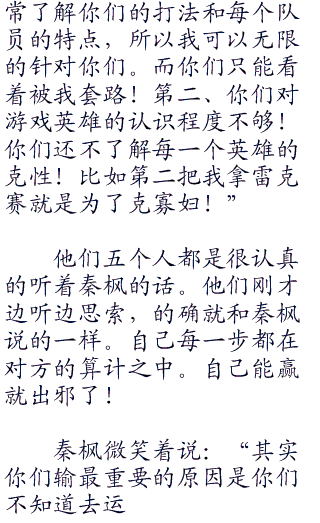 常了解你们的打法和每个队
员的特点，所以我可以无限
的针对你们。而你们只能看
着被我套路！第二、你们对
游戏英雄的认识程度不够！
你们还不了解每一个英雄的
克性！比如第二把我拿雷克
赛就是为了克寡妇！”
他们五个人都是很认真
的听着秦枫的话。他们刚才
边听边思索，的确就和秦枫
说的一样。自己每一步都在
对方的算计之中。自己能赢
就出邪了！
秦枫微笑着说：“其实
你们输最重要的原因是你们
不知道去运